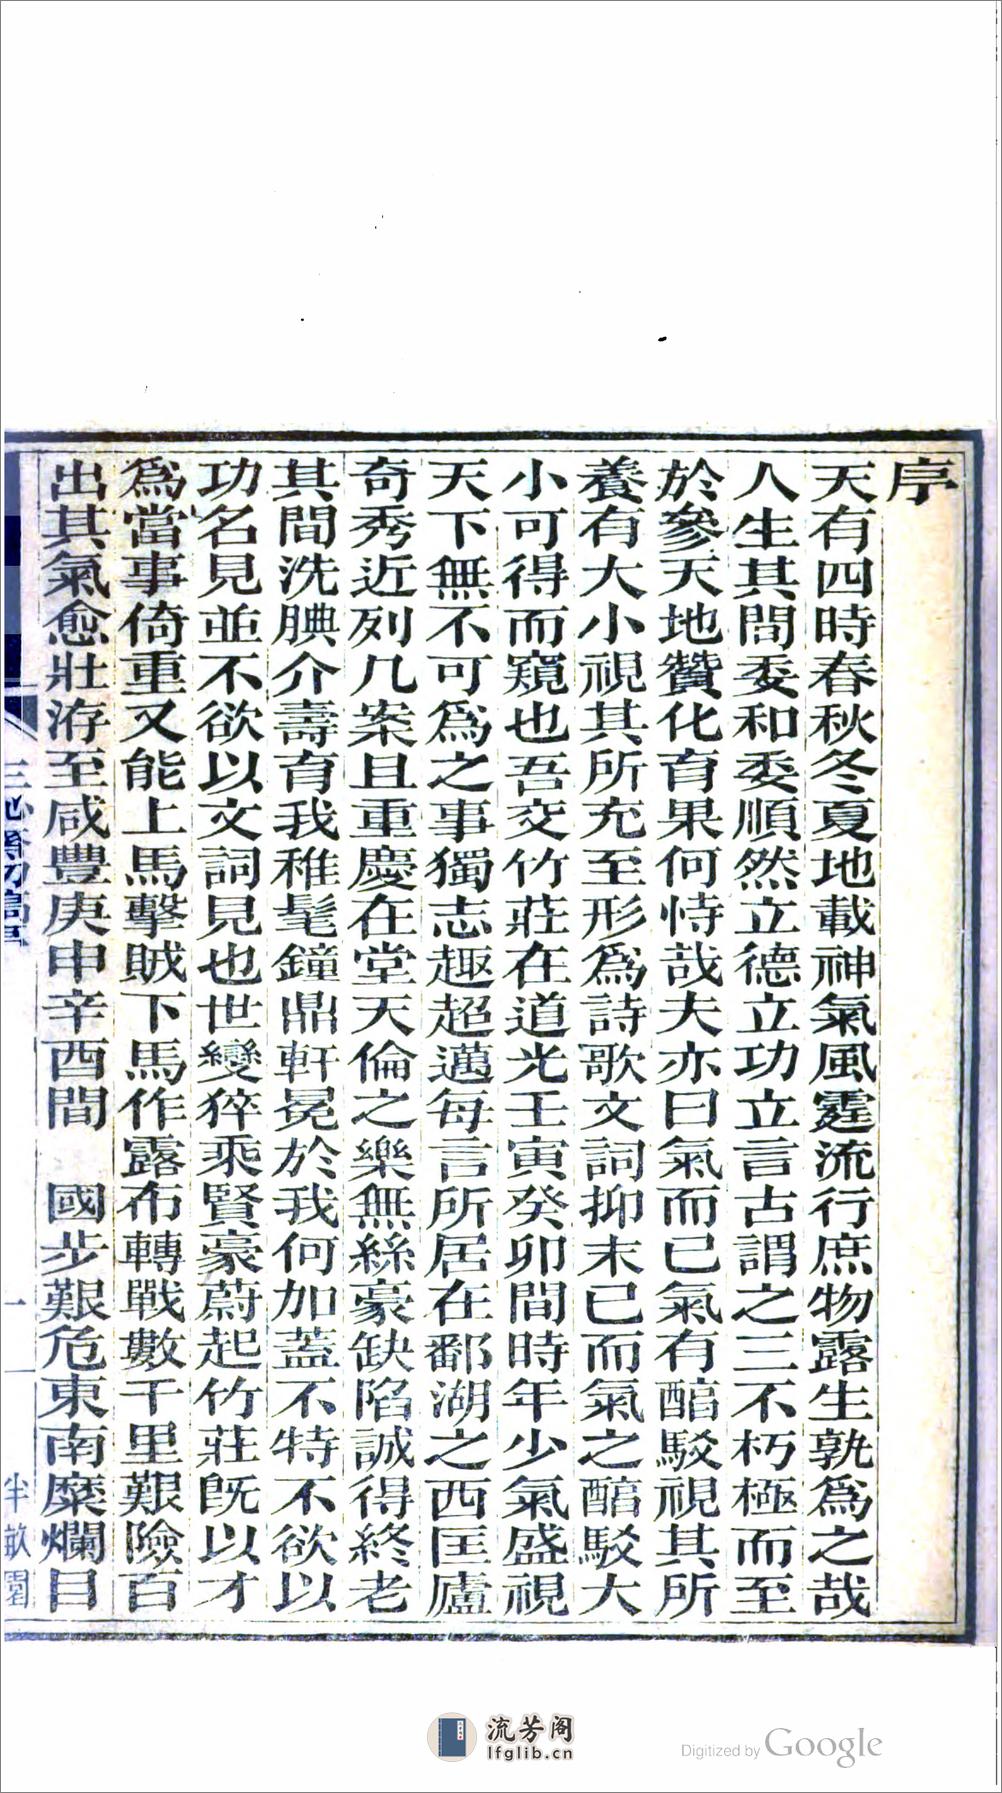 序
天有四時春秋冬夏地載神氣風霆流行庶物露生孰為之哉
人生其間委和委順然立德立功立言古謂之三不朽極而至
於參天地贊化育果何恃哉夫亦曰氣而已氣有醕駁視其所
養有大小視其所充至形為詩歌文詞抑末已而氣之醕駁大
小可得而窺也吾交竹莊在道光壬寅癸卯間時年少氣盛視
天下無不可為之事獨志趣超邁每言所居在鄱湖之西匡廬
奇秀近列几案且重慶在堂天倫之樂無絲豪缺陷誠得終老
其間洗腆介壽育我稚髦鐘鼎軒冕於我何加蓋不特不欲以
功名見並不欲以文詞見也世變猝乘賢豪蔚起竹莊既以才
為當事倚重又能上馬擊賊下馬作露布轉戰數千里艱險百
出其氣愈壯洊至咸豐庚申辛酉間 國步艱危東南糜爛目
一
半畝園
流芳阁
lfglib.cn
Digitized by Google